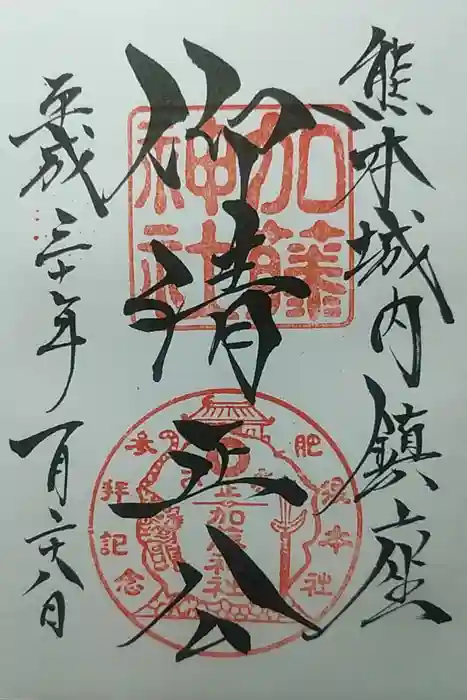 熊本城内鎮座
仰清正公
平成三十年一月二十八日
加藤
神社
肥後本社
参拝記念
加藤神社